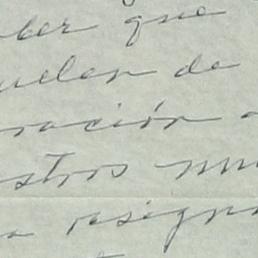 ber que
uelen de
ración
stros mu
a resign